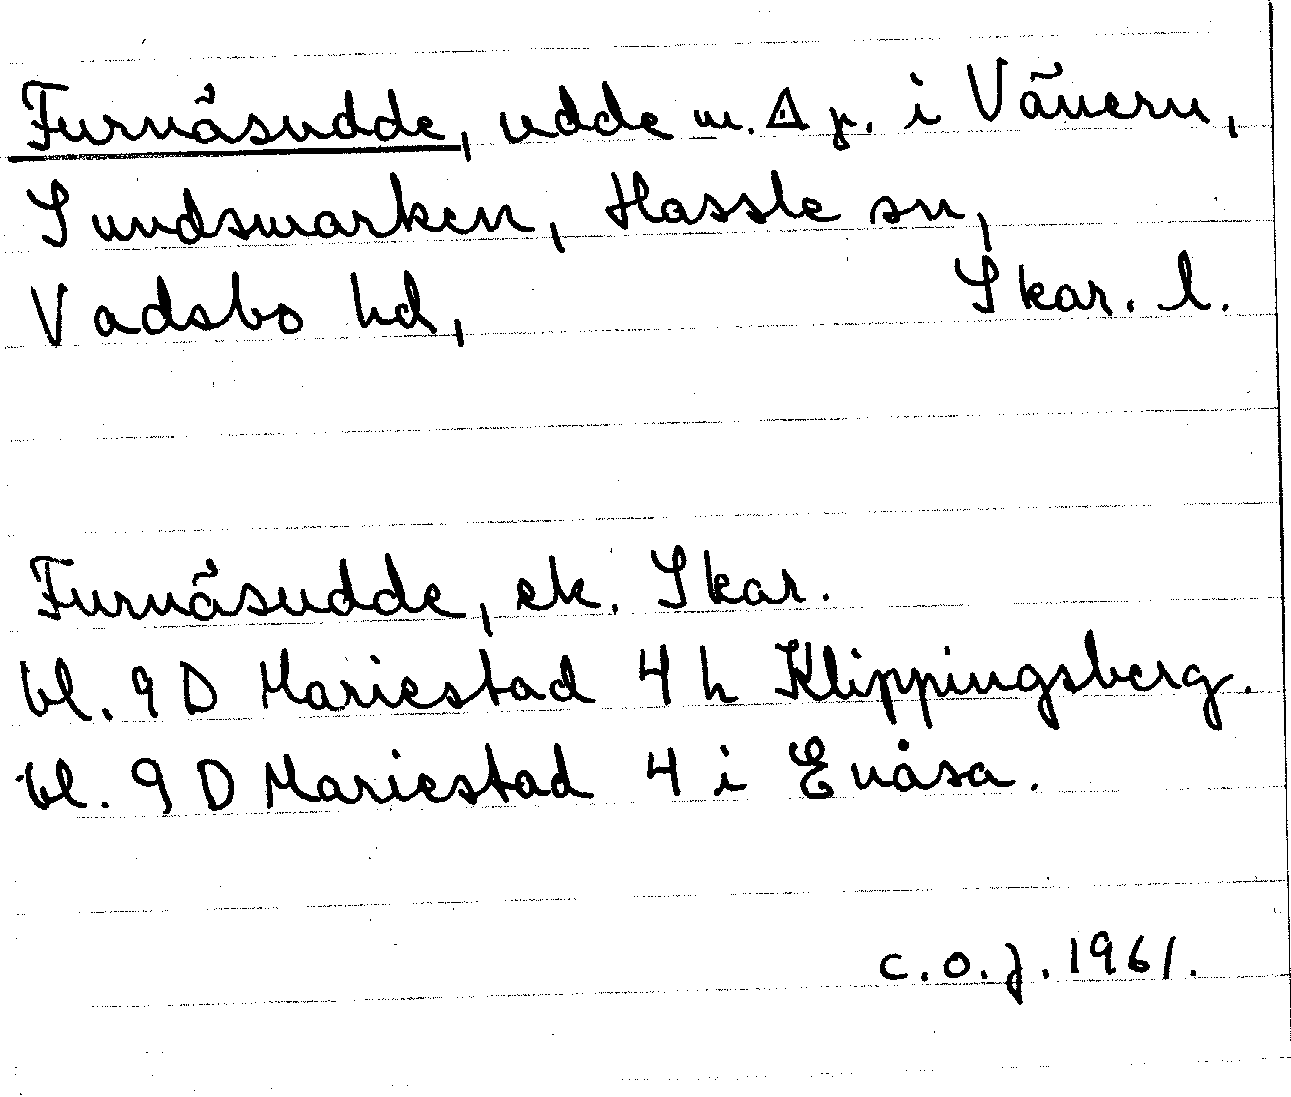 Furnäsudde, udde m. ∆ p. i Vänern,
Sundsmarken, Hassle sn,
Vadsbo hd, Skar. l.
Furnäsudde, ek. Skar.
bl. 9 D Mariestad 4 h Klippingsberg.
bl. 9 D Mariestad 4 i Enåsa.
c.o.j. 1961.